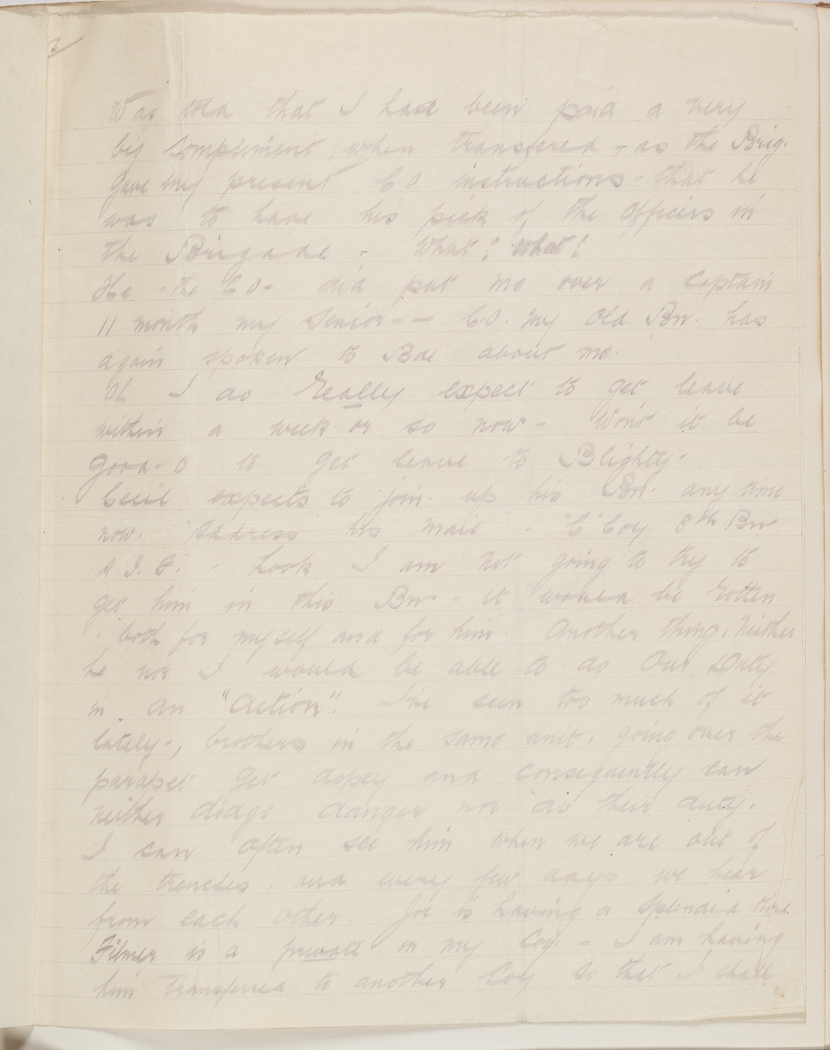 2
Was told that I had been paid a very
big compliment, when transfered - as the Brig.
Gave my present CO instructions - that he
was to have his pick of the Officers in
the Brigade - What! What!
He - the CO - did put me over a Captain
11 month my Senior - - C.O. my Old Bn. has
again spoken to Bde about me.
Oh I do Really expect to get leave
within a week or so now - Won't it be
good - O to get leave to Blighty -
Cecil expects to join up his Bn. any time
now. Address his mail - "C" Coy 8th Bn
A.I.F. - Look I am not going to try to
get him in this Bn - it would be Rotten
both for myself and for him. Another thing, Neither
he nor I would be able to do Our Duty
in an "Action". I've seen too much of it
lately -, brothers in the same unit, going over the
parapet get dopey and consequently can
neither dodge danger nor do their duty.
I can often see him when we are out of
the trenches, and every few days we hear
from each other. Joe is having a splendid time
Filmer is a private in my Coy - I am having
him transferred to another Coy so that I shall